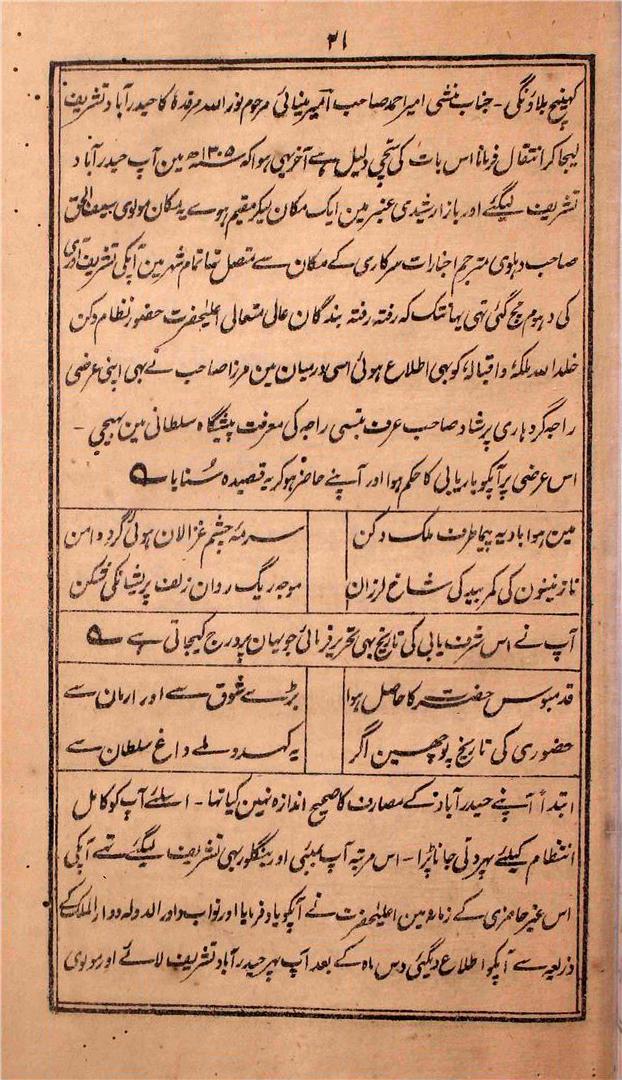 ۲۱
کہینچ بلاؤنگی - جناب منشی امیر احمد صاحب امیر مینائی مرحوم نور اللہ مرقدہٗ کا حیدرآباد تشریف
لیجا کر انتقال فرمانا اس بات کی سچی دلیل ہے آخر یہی ہوا کہ ۱۳۰۵ھ مین آپ حیدرآباد
تشریف لیگئے اور بازار رشیدی عنبر مین ایک مکان لیکر مقیم ہوے یہ مکان مولوی سیف الحق
صاحب دہلوی مترجم اخبارات سرکاری کے مکان سے متصل تہا تمام شہر مین آپکی تشریف آوری
کی دہوم مچ گئی تہی یہانتک کہ رفتہ رفتہ بندگان عالی متعالی اعلیٰحضرت حضور نظام دکن
خلد اللہ ملکہٗ و اقبالہٗ کو بہی اطلاع ہوئی اسی درمیان مین مرزا صاحب نے بہی اپنی عرضی
راجہ گردہاری پرشاد صاحب عرف بنسی راجہ کی معرفت پیشگاہ سلطانی مین بہیجی -
اس عرضی پر آپکو باریابی کا حکم ہوا اور آپنے حاضر ہو کر یہ قصیدہ سُنایا ؎
مین ہوا بادیہ پیما طرف ملک دکن سرمۂ چشم غزالان ہوئی گرد دامن
نازنینون کی کمر بید کی شاخ لرزان موجہ ریگ روان زلف پریشانکی شکن
آپ نے اس شرف یابی کی تاریخ بہی تحریر فرمائی جو یہان پر درج کیجاتی ہے ؎
قدمبوس حضرت کا حاصل ہوا بڑے شوق سے اور ارمان سے
حضوری کی تاریخ پوچھین اگر یہ کہدو ملے داغ سلطان سے
ابتداً آپنے حیدرآباد کے مصارف کا صحیح اندازہ نہین کیا تہا - اسلئے آپ کو کامل
انتظام کیلئے پہر دتی جانا پڑا - اس مرتبہ آپ بمبئی اور بینگلور بہی تشریف لیگئے تہے آپکی
اس غیر حاضری کے زمانہ مین اعلیٰحضرت نے آپکو یاد فرمایا اور نواب داور الدولہ دوار الملک کے
ذریعہ سے آپکو اطلاع دیگئی دس ماہ کے بعد آپ پہر حیدرآباد تشریف لائے اور مولوی